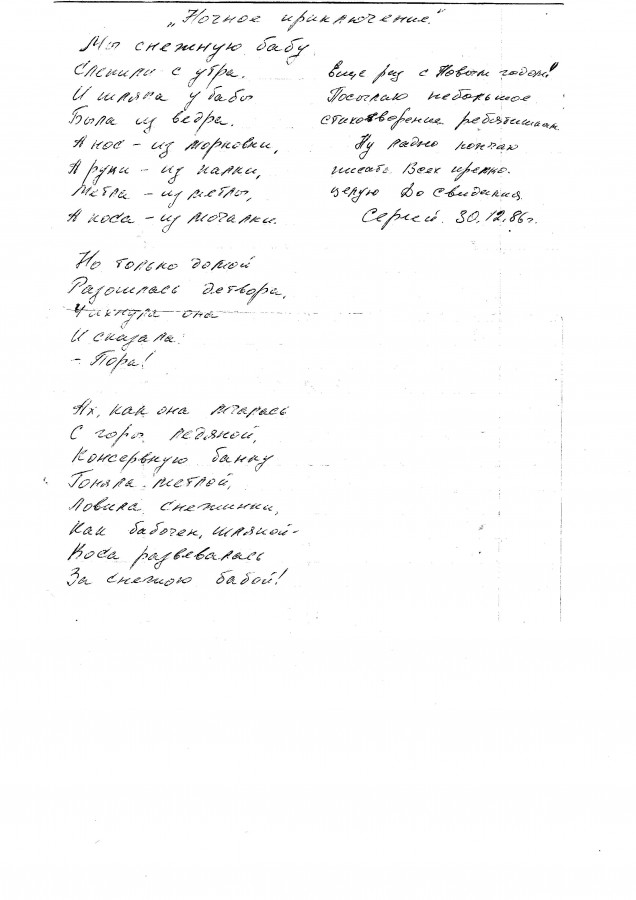 „Ночное приключение."
Мы снежную бабу
Слепили с утра.
И шляпа у бабы
Была из ведра.
А нос – из морковки,
А руки – из палки,
Метла – из метлы,
А коса – из мочалки.
Но только домой
Разошлась детвора,
Чихнула она
И сказала:
– Пора!
Ах, как она мчалась
С горы ледяной,
Консервную банку
Гоняла метлой,
Ловила снежинки,
Как бабочек, шляпой –
Коса развевалась
За снежною бабой!
Еще раз с Новым годом!
Посылаю небольшое
стихотворение ребятишкам
Ну ладно кончаю
писать. Всех крепко
целую До свидания
Сергей. 30.12.86г.